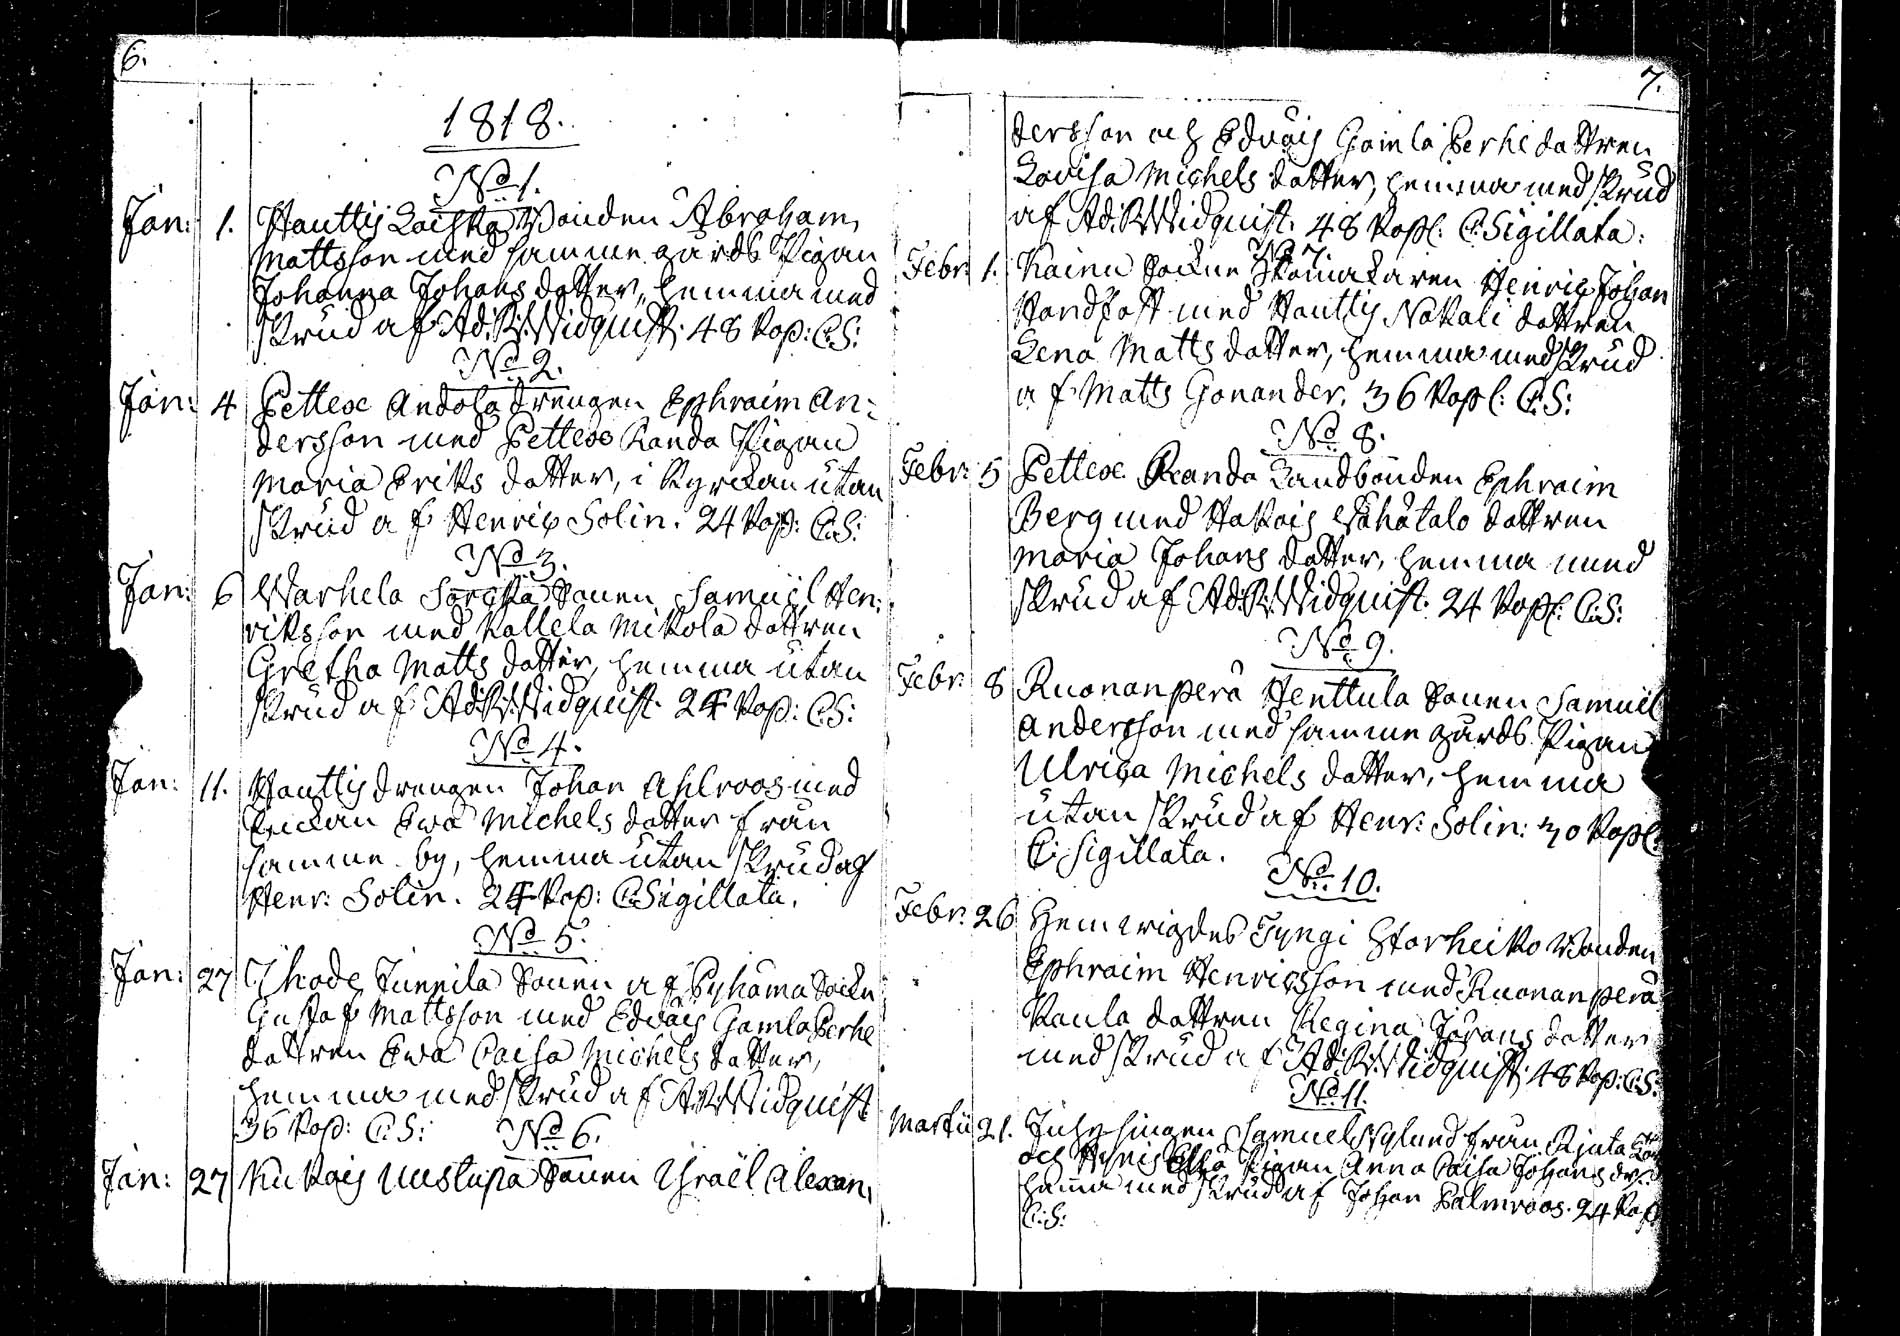 6.
1818.
No 1.
Jan: 1. Hauttis Laiska Bonden Abraham
Mattsson med samme gårds Pigan
Johanna Johans dotter, hemma med
skrud af Ad: R: Widquist. 48 Kop: C:S:
No 2.
Jan: 4 Pettese Andola drengen Ephraim An-
dersson med Pettese Randa Pigan
Maria Eriks dotter, i Kyrckan utan
skrud af Henric Solin. 24 Kop: C:S:
No 3.
Jan: 6 Warhela Sonen Samuel Hen-
riksson med Kallela Mikola dottren
Gretha Matts dotter, hemma utan
skrud af Ad: R: Widquist. 24 Kop: C:S:
No 4.
Jan: 11. Hauttis drengen Johan Ahlroos med
Enckan Ewa Michels dotter från
samme by, hemma utan skrud af
Henr: Solin. 24 Kop: C: Sigillata.
No 5.
Jan: 27 Ihode Junnila Sonen af Pyhäma Sockn
Gustaf Mattsson med Edväis Gamla Perhe
dottren Ewa Caisa Michels dotter,
hemma med skrud af A: R: Widquist
36 Kop: C:S:
No 6.
Jan: 27 Kukois Uustupa Sonen Israël Alexan-
7.
dersson och Edväis Gamla Perhe dottren
Lovisa Michels dotter, hemma med skrud
af Ad: R: Widquist. 48 Kop: C: Sigillata.
No 7.
Febr: 1. Kainu Sockne Skomakaren Henric Johan
Handfast med Hauttis Nokali dottren
Lena Matts dotter, hemma med skrud
af Matts Gonander. 36 Kop: C:S:
No 8.
Febr: 5 Pettese Randa Landbonden Ephraim
Berg med Kukois Wähätalo dottren
Maria Johans dotter, hemma med
skrud af Ad: R: Widquist. 24 Kop: C:S:
No 9.
Febr: 8 Ruonanperä Henttula Sonen Samuel
Andersson med samme gårds Pigan
Ulrica Michels dotter, hemma
utan skrud af Henr: Solin: 30 Kop:
C: Sigillata.
No 10.
Febr: 26 Hemwigdes Tyngi Storheiko Bonden
Ephraim Henricsson med Ruonanperä
Kaula dottren Regina Jörans dotter
med skrud af Ad: R: Widquist. 48 Kop: C:S:
No 11.
Martii 21. Samuel Nylund från
och Pigan Anna Caisa Johans dr
hema med skrud af Johan Palmroos. 24 Kop
C:S: